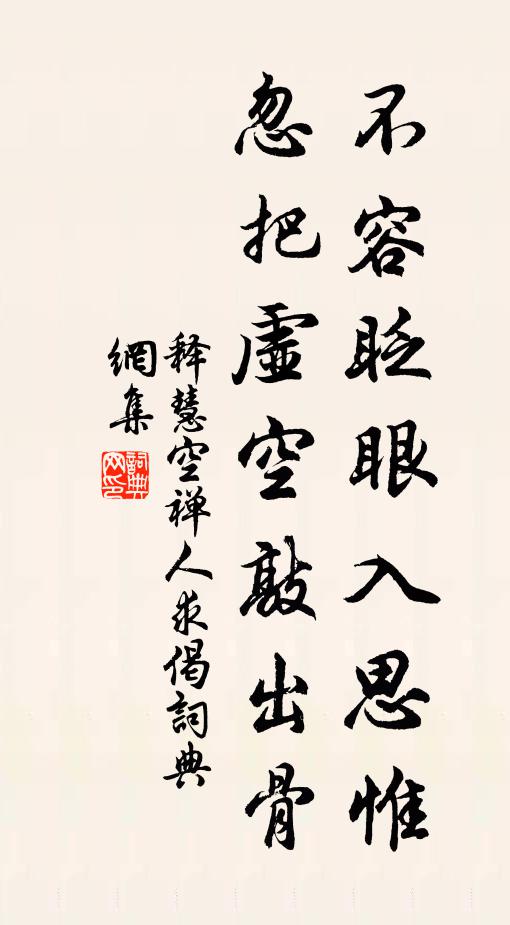 不容眨眼入思惟
忽把虛空敲出骨
释慧空禅人求偈詞典
網集
詞典
网印